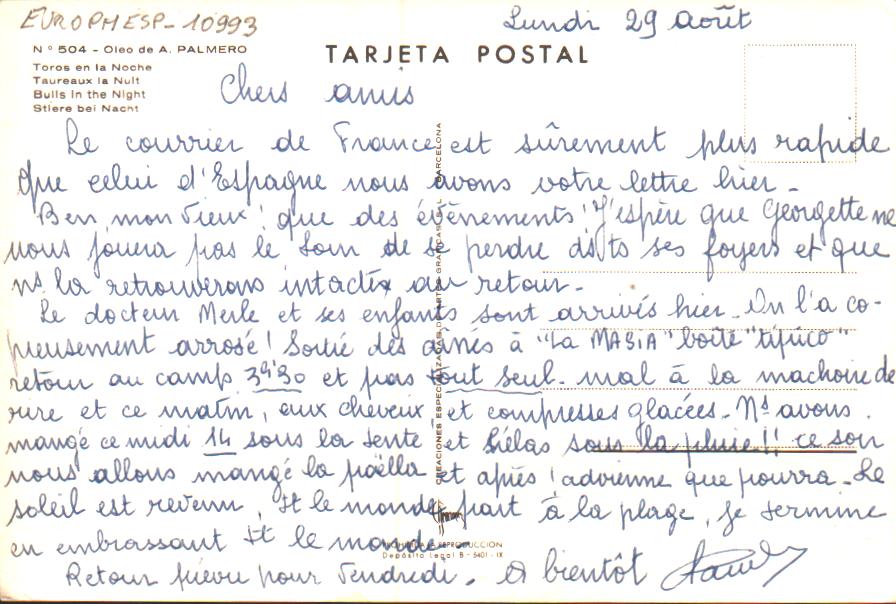 EUROPHESP-10993
Lundi 29 août
N° 504 - Oleo de A. PALMERO
Toros en la Noche
Taureaux la Nuit
Bulls in the Night
Stiere bei Nacht
TARJETA POSTAL
Chers amis
Le courrier de France est sûrement plus rapide
que celui d'Espagne nous avons votre lettre hier -
Ben mon vieux ! que des évènements ! J'espère que Georgette ne
nous jouera pas le tour de se perdre ds ts ses foyers et que
ns la retrouverons intacte au retour -
Le docteur Merle et ses enfants sont arrivés hier - On l'a co-
pieusement arrosé ! Sortie des aînés à "La MASIA" boîte "tipico"
retour au camp 3h30 et pas tout seul - mal à la machoire de
rire et ce matin, aux cheveux et compresses glacées - Ns avons
mangé ce midi 14 sous la tente et hélas sous la pluie !! ce soir
nous allons mangé la paëlla et après ! advienne que pourra - Le
soleil est revenu, tt le monde part à la plage, je termine
en embrassant tt le monde
Retour prévu pour Vendredi. A bientôt
CREACIONES ESPECIALIZADAS DE ARTES GRAFICAS S. L. BARCELONA
PROHIBIDA LA REPRODUCCION
Depósito Legal B - 5401 - IX